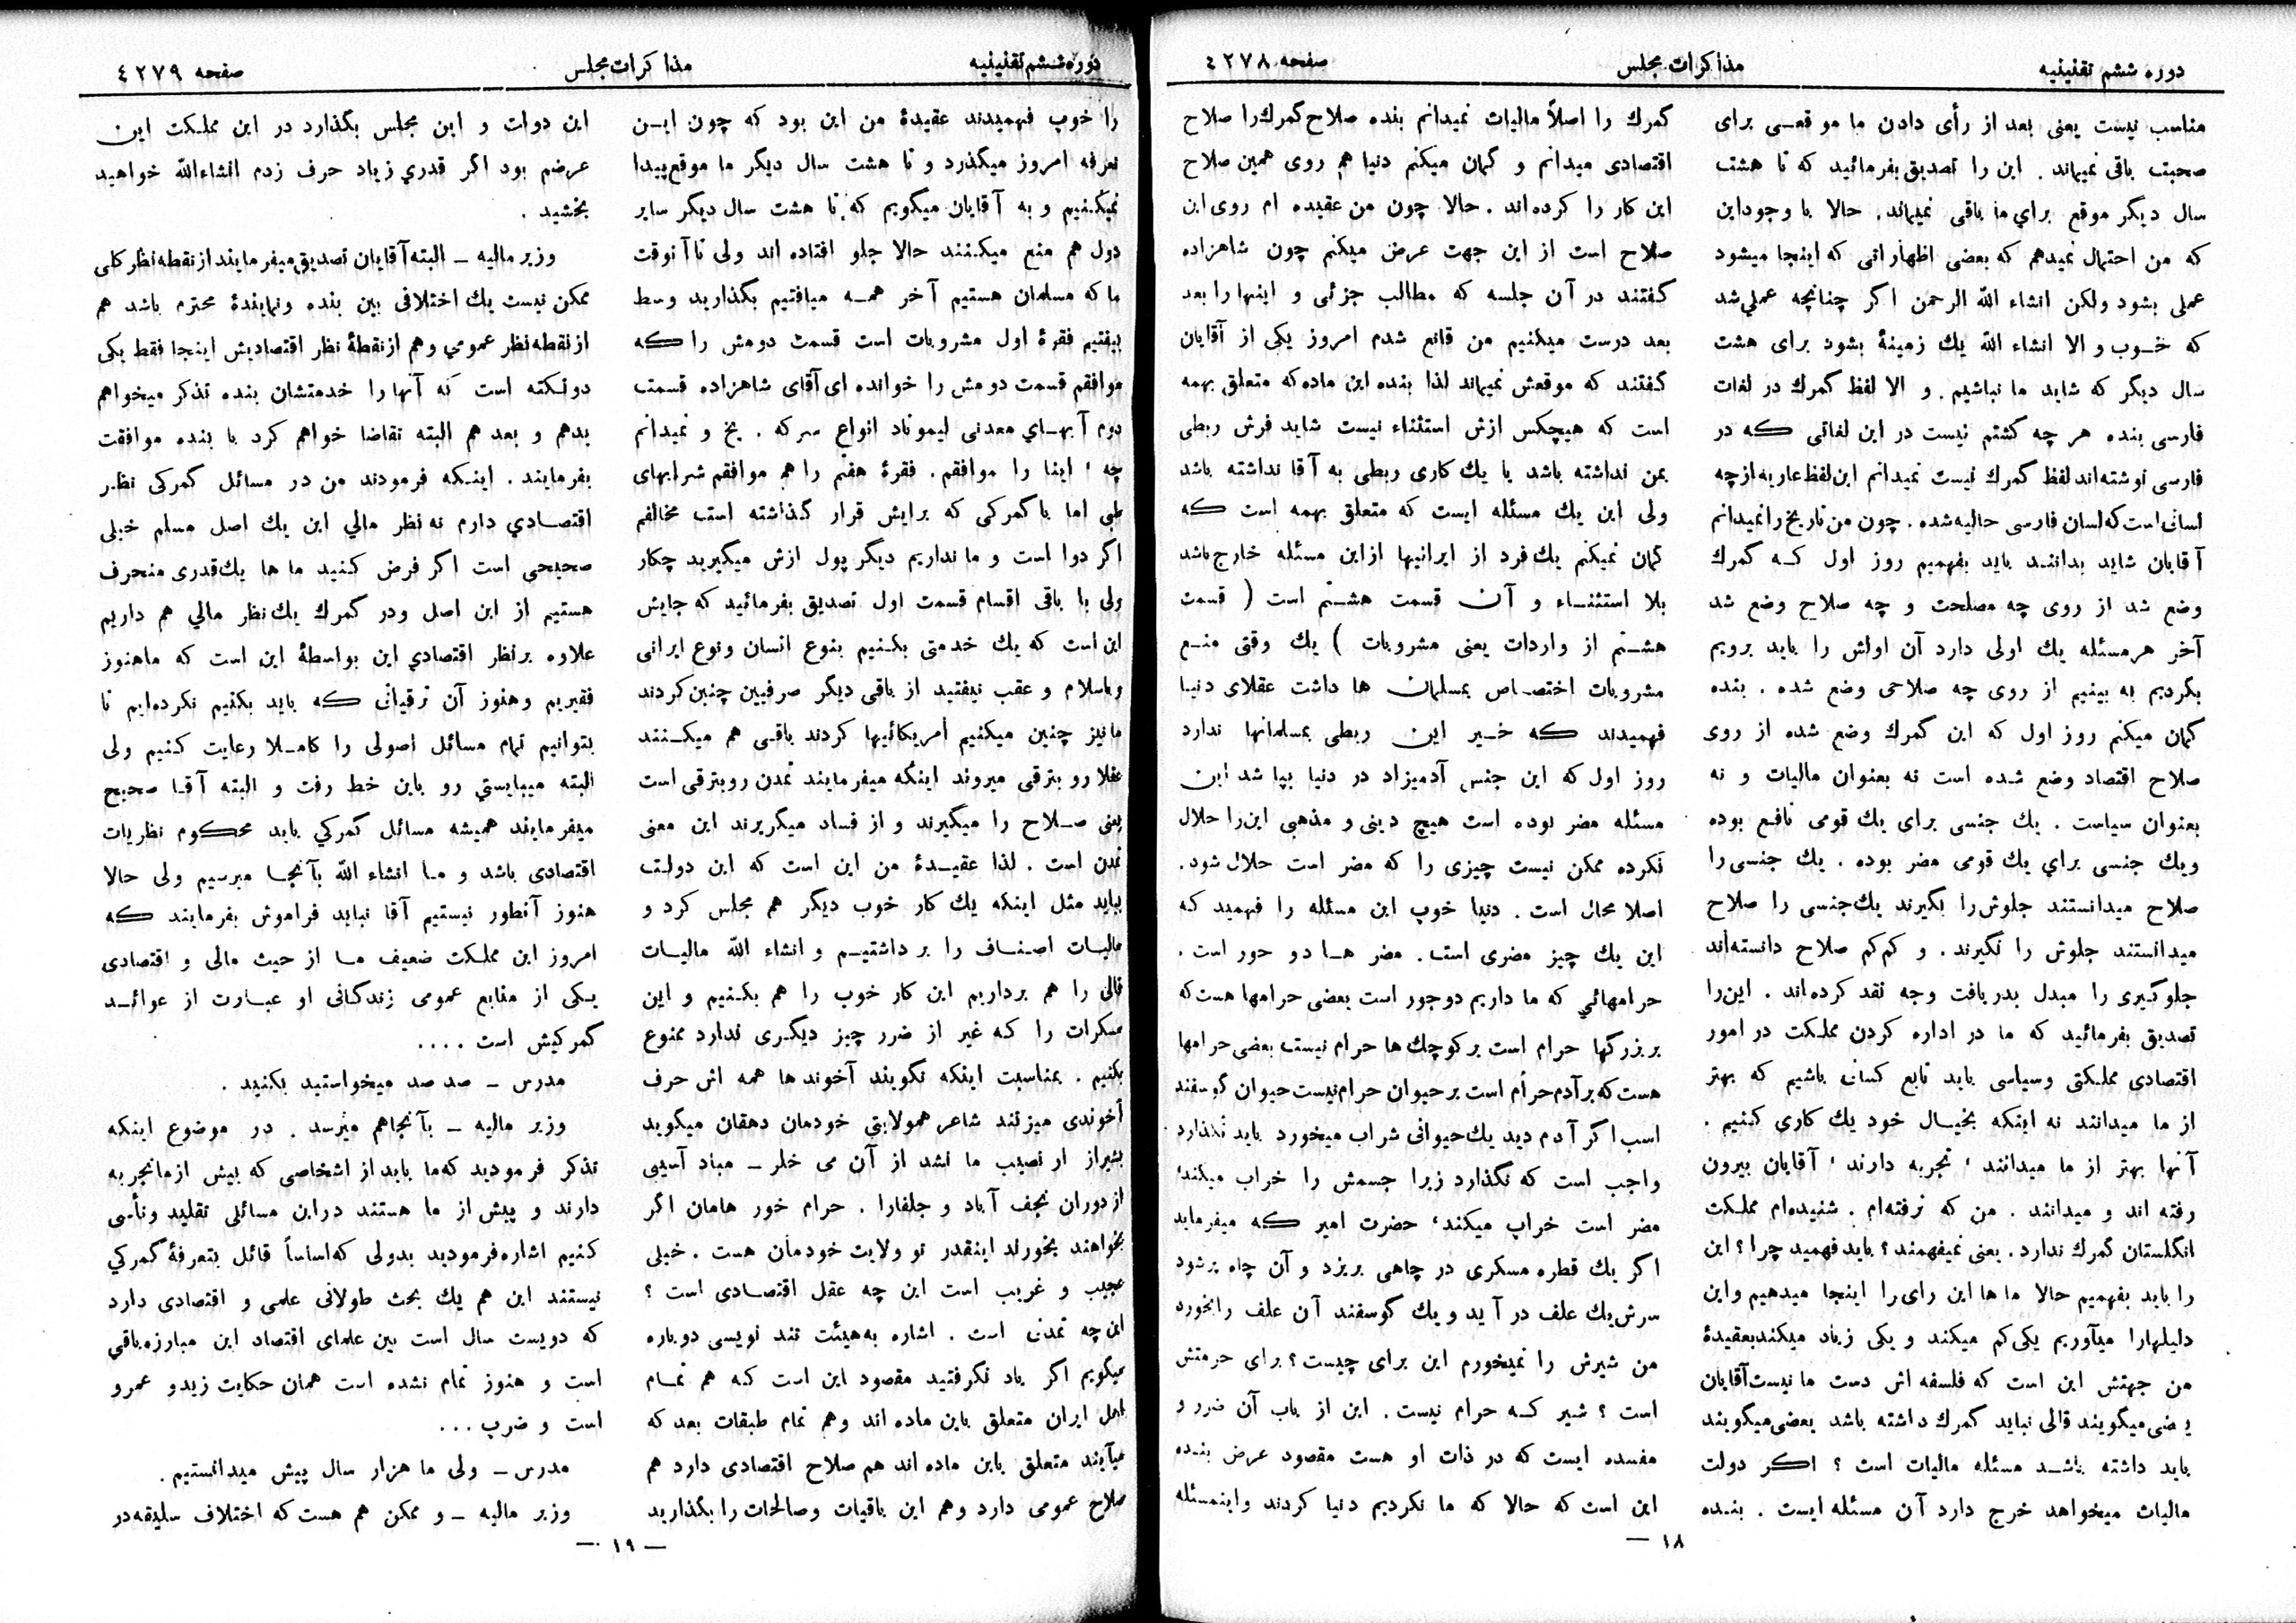 دوره ششم تقنینیه
مذاکرات مجلس
صفحه ٤٢٧٨
مناسب نیست یعنی بعد از رأی دادن ما موقعـی برای
صحبت باقی نمیماند . این را تصدیق بفرمائید که تا هشت
سال دیگر موقع براي ما باقی نمیماند. حالا با وجود این
که من احتمال نمیدهم که بعضی اظهاراتی که اینجا میشود
عملی بشود ولکن انشاء الله الرحمن اگر چنانچه عملی شد
که خـوب و الا انشاء الله یك زمینهٔ بشود برای هشت
سال دیگر که شاید ما نباشیم . و الا لفظ گمرك در لغات
فارسی بنده هر چه گشتم نیست در این لغاتی کـه در
فارسی نوشته اند لفظ گمرك نیست نمیدانم این لفظ عاریه از چه
لسانی است که لسان فارسی حالیه شده . چون من تاریخ را نمیدانم
آقایان شاید بدانند باید بفهمیم روز اول کـه گمرك
وضع شد از روی چه مصلحت و چه صلاح وضع شد
آخر هر مسئله یك اولی دارد آن اولش را باید برویم
بگردیم به بینیم از روی چه صلاحی وضع شده . بنده
گمان میکنم روز اول که این گمرك وضع شده از روی
صلاح اقتصاد وضع شده است نه بعنوان مالیات و نه
بعنوان سیاست . یك جنسی برای یك قومی نافع بوده
ویك جنسی براي یك قومی مضر بوده . یك جنسی را
صلاح میدانستند جلوش را بگیرند یك جنسی را صلاح
میدانستند جلوش را نگیرند . و کم کم صلاح دانسته اند
جلوگیری را مبدل بدریافت وجه نقد کرده اند . این را
تصدیق بفرمائید که ما در اداره کردن مملکت در امور
اقتصادی مملکتی وسیاسی باید تابع کسانی باشیم که بهتر
از ما میدانند نه اینکه بخیـال خود یك کاری کنیم .
آنها بهتر از ما میدانند ، تجربه دارند ، آقایان بیرون
رفته اند و میدانند . من که نرفته ام . شنیده ام مملکت
انگلستان گمرك ندارد . یعنی نمیفهمند ؟ باید فهمید چرا ؟ این
را باید بفهمیم حالا ما ها این رای را اینجا میدهیم و این
دلیلهارا میآوریم یکی کم میکند و یکی زیاد میکند بعقیدهٔ
من جهتش این است که فلسفه اش دست ما نیست آقایان
بعضی میگویند قالی نباید گمرك داشته باشد بعضی میگویند
باید داشته باشـد مسئله مالیات است ؟ اگـر دولت
مالیات میخواهد خرج دارد آن مسئله ایست . بنـده
گمرك را اصلاً مالیات نمیدانم بنده صلاح گمرك را صلاح
اقتصادی میدانم و گمان میکنم دنیا هم روی همین صلاح
این کار را کرده اند . حالا چون من عقیده ام روی این
صلاح است از این جهت عرض میکنم چون شاهزاده
گفتند در آن جلسه که مطالب جزئی و اینها را بعد
بعد درست میکنیم من قانع شدم امروز یکی از آقایان
گفتند که موقعش نمیماند لذا بنده این ماده که متعلق بهمه
است که هیچکس ازش استثناء نیست شاید فرش ربطی
بمن نداشته باشد یا یك کاری ربطی به آقا نداشته باشد
ولی این یك مسئله ایست که متعلق بهمه است که
گمان نمیکنم یك فرد از ایرانیها از این مسئله خارج باشد
بلا استثنـاء و آن قسمت هشـتم است ( قسمت
هشـتم از واردات یعنی مشروبات ) یك وقتی منـع
مشروبات اختصـاص بمسلمان ها داشت عقلای دنیـا
فهمیدند کـه خـیر این ربطی بمسلمانها ندارد
روز اول که این جنس آدمیزاد در دنیا بپا شد این
مسئله مضر بوده است هیچ دینی و مذهبی این را حلال
نکرده ممکن نیست چیزی را که مضر است حلال شود .
اصلا محال است . دنیا خوب این مسئله را فهمید کـه
این یك چیز مضری است . مضر هـا دو جور است .
حرامهائي که ما داریم دو جور است بعضی حرامها هست که
بر بزرگها حرام است بر کوچك ها حرام نیست بعضی حرامها
هست که بر آدم حرام است بر حیوان حرام نیست حیوان گوسفند
اسب اگر آدم دید یك حیوانی شراب میخورد باید نگذارد
واجب است که نگذارد زیرا جسمش را خراب میکند ،
مضر است خراب میکند ، حضرت امیر کـه میفرماید
اگر یك قطره مسکری در چاهی بریزد و آن چاه پر شود
سرش یك علف در آید و یك گوسفند آن علف را بخورد
من شیرش را نمیخورم این برای چیست ؟ برای حرمتش
است ؟ شیر کـه حرام نیست . این از باب آن ضرر و
مفسده ایست که در ذات او هست مقصود عرض بنـده
این است که حالا که ما نکردیم دنیا کردند و اینمسئله
١٨ —
دوره ششم تقنینیه
مذاکرات مجلس
صفحه ٤٢٧٩
را خوب فهمیدند عقیدهٔ من این بود که چون ایـن
تعرفه امروز میگذرد و تا هشت سال دیگر ما موقع پیدا
نمیکنیم و به آقایان میگویم که تا هشت سال دیگر سایر
دول هم منع میکـنند حالا جلو افتاده اند ولی تا آنوقت
ما که مسلمان هستیم آخر همـه میافتیم بگذارید وسط
بیفتیم فقرهٔ اول مشروبات است قسمت دومش را کـه
موافقم قسمت دومش را خوانده ای آقای شاهزاده قسمت
دوم آبهـاي معدنی لیموناد انواع سرکه . یخ و نمیدانم
چه ، اینا را موافقم . فقرهٔ هفتم را هم موافقم شرابهای
طبی اما با گمرکی که برایش قرار گذاشته است مخالفم
اگر دوا است و ما نداریم دیگر پول ازش میگیرید چکار
ولی با باقی اقسام قسمت اول تصدیق بفرمائید که جایش
این است که یك خدمتی بکـنیم بنوع انسان ونوع ایرانی
وباسلام و عقب نیفتید از باقی دیگر صرفیین چنین کردند
مانیز چنین میکنیم أمریکائیها کردند باقـی هم میکـنند
عقلا رو بترقی میروند اینکه میفرمایند تمدن روبترقی است
یعنی صـلاح را میگیرند و از فساد میگریزند این معنی
تمدن است . لذا عقیـدهٔ من این است که این دولت
بیاید مثل اینکه یك کار خوب دیگر هم مجلس کرد و
مالیـات اصنـاف را برداشتیـم و انشاء الله مالیـات
قالی را هم برداریم این کار خوب را هم بکـنیم و این
مسکرات را کـه غیر از ضرر چیز دیگری ندارد ممنوع
بکنیم . بمناسبت اینکه نگویند آخوند ها همه اش حرف
آخوندی میزنند شاعر همولایتی خودمان دهقان میگوید
بشیراز ار نصیب ما نشد از آن می خلر ـ مباد آسیبی
از دوران نجف آباد و جلفارا . حرام خور هامان اگر
بخواهند بخورند اینقدر تو ولایت خودمان هست . خیلی
عجیب و غریب است این چه عقل اقتصـادی است ؟
این چه تمدن است . اشاره به هیئت تند نویسی دوباره
میگویم اگر یاد نگرفتید مقصود این است کـه هم تمـام
اهل ایران متعلق باین ماده اند وهم تمام طبقات بعد که
میآیند متعلق باین ماده اند هم صلاح اقتصادی دارد هم
صلاح عمومی دارد وهم این باقیات وصالحات را بگذارید
این دولت و این مجلس بگذارد در این مملـکت این
عرضم بود اگر قدري زیاد حرف زدم انشاءالله خواهید
بخشید .
وزیر مالیه ـ البته آقایان تصدیق میفرمایند از نقطه نظر کلی
ممکن نیست یك اختلافی بین بنده ونمایندهٔ محترم باشد هم
از نقطه نظر عمومي وهم از نقطهٔ نظر اقتصادیش اینجا فقط یکی
دو نکته است که آنها را خدمتشان بنده تذکر میخواهم
بدهم و بعد هم البته تقاضا خواهم کرد با بنده موافقت
بفرمایند . اینـکه فرمودند من در مسائل گمرکی نظـر
اقتصـادي دارم نه نظر مالي این یك اصل مسلم خیلی
صحیحی است اگر فرض کـنید ما ها یك قدری منحرف
هستیم از این اصل ودر گمرك یك نظر مالي هم داریم
علاوه بر نظر اقتصادي این بواسطهٔ این است که ماهنوز
فقیریم وهنوز آن ترقیاتی کـه باید بکنیم نکرده ایم تا
بتوانیم تمام مسائل اصولی را کامـلا رعایت کـنیم ولی
البته میبایستي رو باین خط رفت و البته آقـا صحیح
میفرمایند همیشه مسائل گمرکي باید محکـوم نظریات
اقتصادی باشد و مـا انشاء الله بآنجـا میرسیم ولی حالا
هنوز آنطور نیستیم آقا نباید فراموش بفرمایند کـه
امروز این مملـکت ضعیف مـا از حیث مالی و اقتصادی
یـکی از منابع عمومی زندگـانی او عبـارت از عوائـد
گمرکیش است . . . .
مدرس ـ صد صد میخواستید بکنید .
وزیر مالیه ـ بآنجاهم میرسد . در موضوع اینکه
تذکر فرمودید که ما باید از اشخاصی که بیش از ماتجربه
دارند و پیش از ما هستند در این مسائلی تقلید وتأسی
کـنیم اشاره فرمودید بدولی که اساساً قائل بتعرفهٔ گمرکي
نیستند این هم یك بحث طولانی علمی و اقتصادی دارد
که دویست سال است بین علمای اقتصاد این مبارزه باقی
است و هنوز تمام نشده است همان حکایت زیدو عمرو
است و ضرب . . .
مدرس ـ ولی ما هزار سال پیش میدانستیم .
وزیر مالیه ـ و ممکن هم هست که اختلاف سلیقه در
— ١٩ —